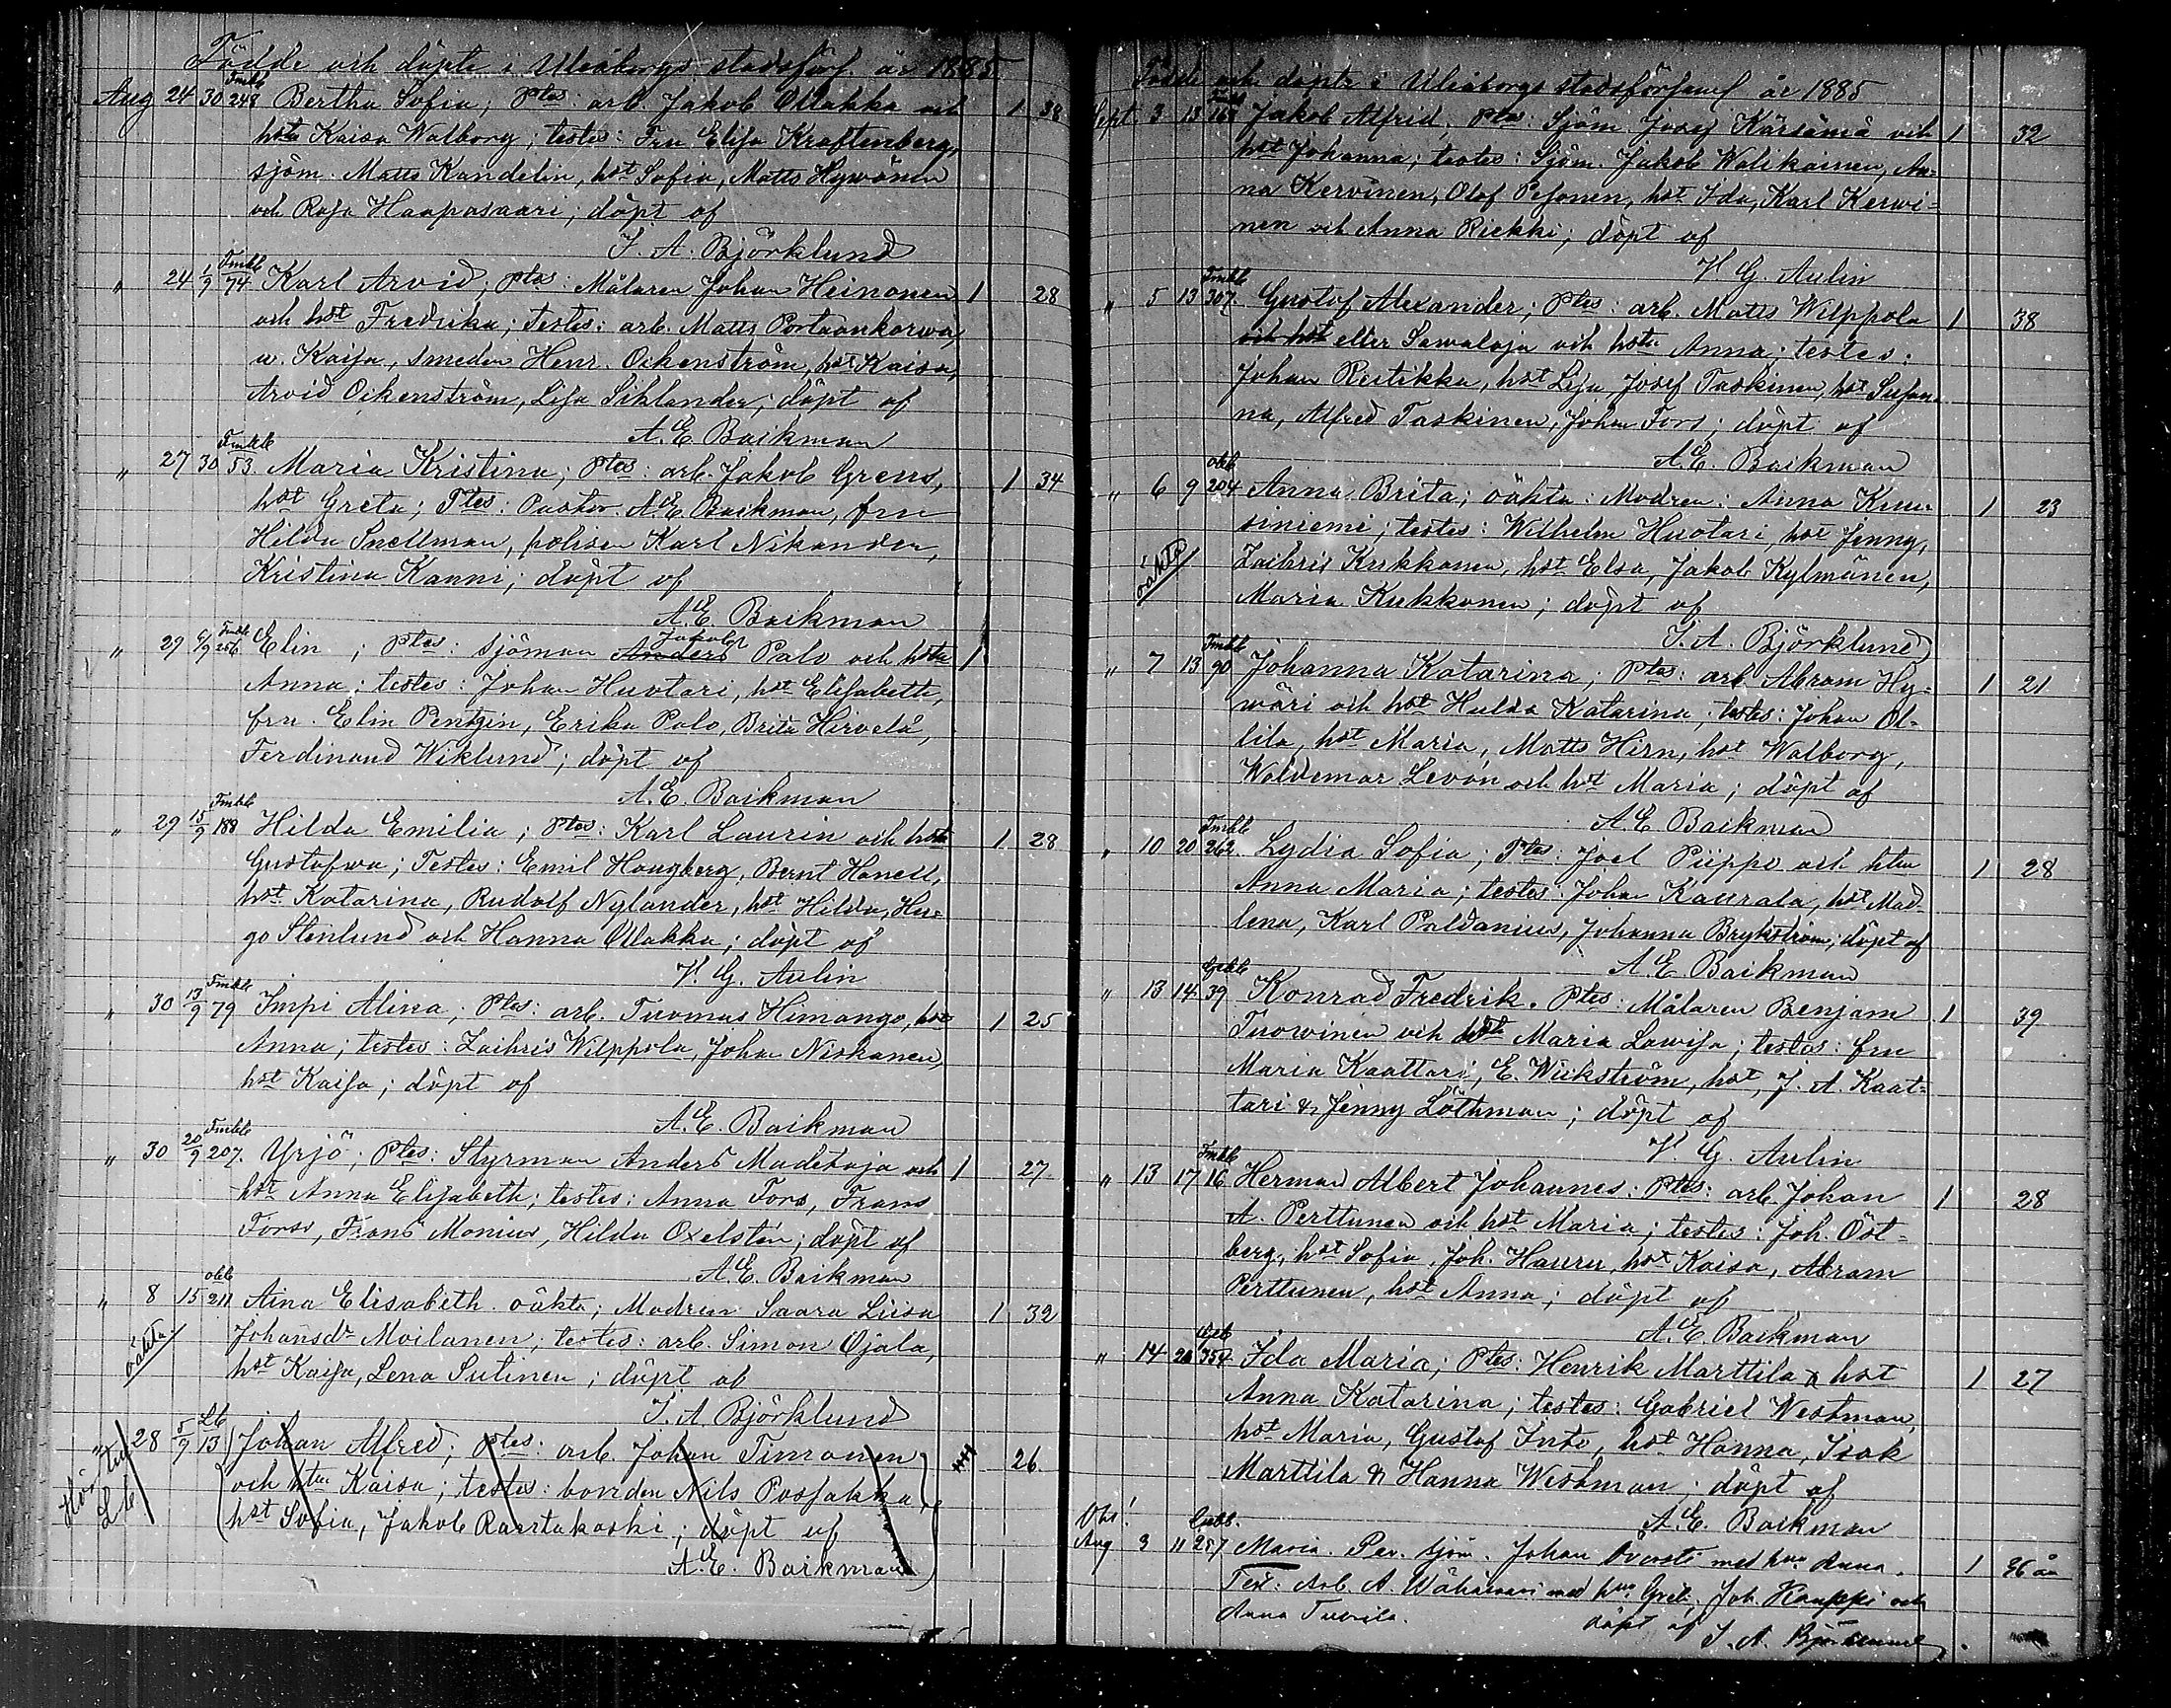 Födde och döpte i Uleåborgs stadsförs. år 1885
Aug 24 30 Fmbl 248 Bertha Sofia; Ptes: arb. Jakob Ollakka och 1 38
hstu Kaisa Walborg; testes: Fru Elisa Kraftenberg,
sjöm. Matts Kandelin, hst Sofia, Matts Hywönen
och Rosa Haapasaari; döpt af
J. A. Björklund
" 24 1/9 Fmbl 74 Karl Arvid; Ptes: Målaren Johan Heinonen 1 28
och hst Fredrika; testes: arb. Matts Portaankorwa,
w. Kaisa, smeden Henr. Oikenström, hst Kaisa,
Arvid Oikenström, Lisa Sihlander; döpt af
A. E. Baikman
" 27 30 Fmbl 53. Maria Kristina; Ptes: arb. Jakob Grens, 1 34
hst Greta; Ttes: Pastor A. E. Baikman, fru
Hilda Snellman, polisen Karl Nikander,
Kristina Kanni; döpt af
A. E. Baikman
" 29 6/9 Fmbl 256 Elin; Ptes: sjöman Anders Jakob Palo och hstu 1
Anna; testes: Johan Huotari, hst Elisabeth,
fru Elin Pentzin, Erika Palo, Brita Hirvelä,
Ferdinand Wiklund; döpt af
A. E. Baikman
" 29 13/9 Fmbl 188 Hilda Emilia; Ptes: Karl Laurin och hstu 1 28
Gustafwa; Testes: Emil Hougberg, Bernt Hanell,
hst Katarina, Rudolf Nylander, hst Hilda, Hu-
go Stenlund och Hanna Ollakka; döpt af
V. G. Aulin
" 30 13/9 Fmbl 79 Impi Alina; Ptes: arb. Tuomas Himango, hst 1 25
Anna; testes: Zachris Wilppola, Johan Niskanen,
hst Kaisa; döpt af
A. E. Baikman
" 30 20/9 Fmbl 207. Yrjö; Ptes: Styrman Anders Madetoja och 1 27
hst Anna Elisabeth; testes: Anna Fors, Frans
Forss, Frans Monius, Hilda Oxelstén; döpt af
A. E. Baikman
" 8 15 obb 211 Aina Elisabeth. oäkta; Modren Saara Liisa 1 32
oäkta Johansdr Moilanen; testes: arb. Simon Ojala,
hst Kaisa, Lena Sutinen; döpt af
J. A. Björklund
28 5/9 Lb 13 Johan Alfred; Ptes: arb. Johan Timonen 26
och htru Kaisa; testes: bonden Nils Possakka,
hst Sofia, Jakob Raatakoski; döpt af
A. E. Baikman
Hör till Lb
Födde och döpte i Uleåborgs stadsförsaml år 1885
Sept 3 13 Jakob Alfrid, Ptes: Sjöm Josef Kärsämä och 1 32
hst Johanna; testes: Sjöm. Jakob Walikainen, An-
na Kervinen, Olof Pesonen, hst Ida, Karl Kerwi-
nen och Anna Riekki; döpt af
V. G. Aulin
" 5 13 Fmbl 307. Gustaf Alexander; Ptes: arb. Matts Wilppola 1 38
och hst eller Sawaloja och hstu Anna; testes:
Johan Ristikka, hst Lisa, Josef Taskinen, hst Susan-
na, Alfred Taskinen, Johan Fors; döpt af
A. E. Baikman
" 6 9 obb 204 Anna Brita; oäkta: Modren: Anna Kuu- 1 23
siniemi; testes: Wilhelm Huotari, hst Jenny,
oäkta Zachris Kukkonen, hst Elsa, Jakob Kylmänen,
Maria Kukkonen; döpt af
J. A. Björklund
" 7 13 Fmbl 90 Johanna Katarina; Ptes: arb. Abram Hy- 1 21
wäri och hst Hulda Katarina; testes: Johan Ol-
lila, hst Maria, Matts Hirn, hst Walborg,
Woldemar Levón och hst Maria; döpt af
A. E. Baikman
" 10 20 Fmbl 262. Lydia Sofia; Ptes: Joel Piippo och htru 1 28
Anna Maria; testes: Johan Kaurala, hst Mad-
lena, Karl Paldanius, Johanna Brykström; döpt af
A. E. Baikman
" 13 14 39 Konrad Fredrik. Ptes: Målaren Benjam 1 39
Tuowinen och hst Maria Lowisa; testes: fru
Maria Kaattari, E. Wickström, hst, J. A. Kaat-
tari & Jenny Löthman; döpt af
V. G. Aulin
" 13 17 Fmbl 16 Herman Albert Johannes: Ptes: arb. Johan 1 28
A. Perttunen och hst Maria; testes: Joh. Öst-
berg, hst Sofia, Joh. Hauru, hst Kaisa, Abram
Perttunen, hst Anna; döpt af
A. E. Baikman
" 14 20 354 Ida Maria; Ptes: Henrik Marttila & hst 1 27
Anna Katarina; testes: Gabriel Westman,
hst Maria, Gustaf Into, hst Hanna, Isak
Marttila & Hanna Westman; döpt af
A. E. Baikman
Obs!
Aug 3 11 257 Maria. Per. sjöm. Johan Öwersti med hru Anna. 1 36 år
Test: Arb. A. Wähäwari med hru Gret, Joh. Kauppi och
Anna Tuurila. döpt af J. A. Björklund